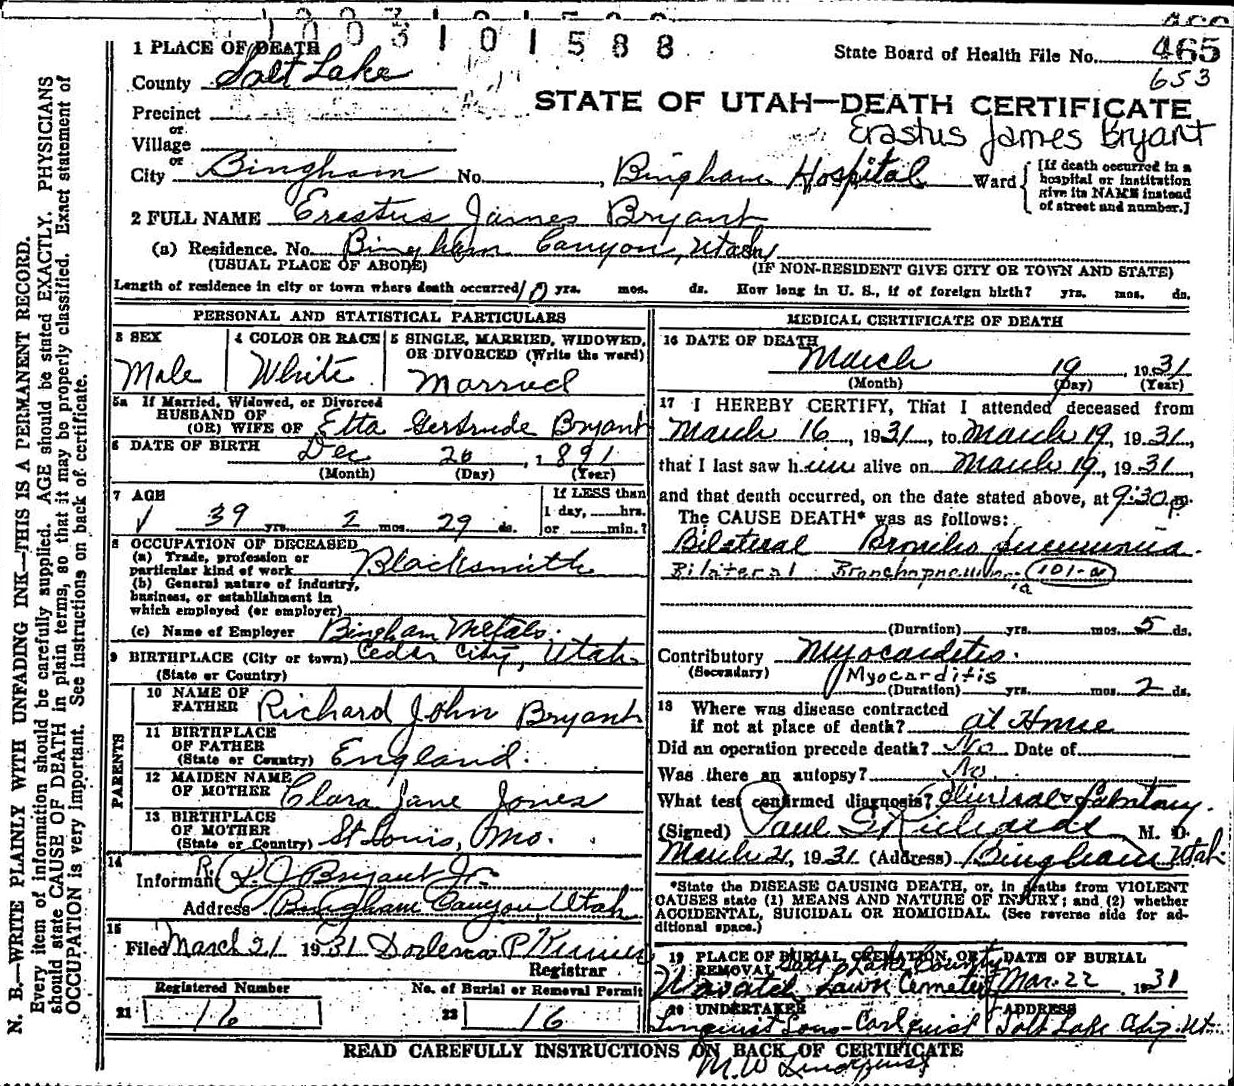 1003101588
State Board of Health File No. 465
653
1 PLACE OF DEATH
County Salt Lake
STATE OF UTAH—DEATH CERTIFICATE
Precinct
or
Village
Erastus James Bryant
or
City Bingham No. , Bingham Hospital Ward
[If death occurred in a
hospital or institution
give its NAME instead
of street and number.]
2 FULL NAME Erastus James Bryant
(a) Residence. No. Bingham Canyon, Utah
(USUAL PLACE OF ABODE) (IF NON-RESIDENT GIVE CITY OR TOWN AND STATE)
Length of residence in city or town where death occurred 10 yrs. mos. ds. How long in U. S., if of foreign birth? yrs. mos. ds.
PERSONAL AND STATISTICAL PARTICULARS
3 SEX
Male
4 COLOR OR RACE
White
5 SINGLE, MARRIED, WIDOWED,
OR DIVORCED (Write the word)
Married
5a If Married, Widowed, or Divorced
HUSBAND OF
(OR) WIFE OF Etta Gertrude Bryant
6 DATE OF BIRTH Dec 20, 1891
(Month) (Day) (Year)
7 AGE
39 yrs. 2 mos. 29 ds.
If LESS than
1 day, hrs.
or min.?
8 OCCUPATION OF DECEASED
(a) Trade, profession or
particular kind of work Blacksmith
(b) General nature of industry,
business, or establishment in
which employed (or employer)
(c) Name of Employer Bingham Metals.
9 BIRTHPLACE (City or town) Cedar City, Utah
(State or Country)
PARENTS
10 NAME OF
FATHER Richard John Bryant
11 BIRTHPLACE
OF FATHER
(State or Country) England.
12 MAIDEN NAME
OF MOTHER Clara Jane Jones
13 BIRTHPLACE
OF MOTHER
(State or Country) St Louis, Mo.
14
Informant R. J. Bryant Jr.
Address Bingham Canyon, Utah
15
Filed March 21 1931
Registrar
Registered Number
21 16
No. of Burial or Removal Permit
22 16
MEDICAL CERTIFICATE OF DEATH
16 DATE OF DEATH
March 19, 1931
(Month) (Day) (Year)
17 I HEREBY CERTIFY, That I attended deceased from
March 16, 1931, to March 19, 1931,
that I last saw him alive on March 19, 1931,
and that death occurred, on the date stated above, at 9:30 p.
The CAUSE DEATH* was as follows:
Bilateral Broncho pneumonia.
Bilateral Bronchopneumonia 101-a
(Duration) yrs. mos. 5 ds.
Contributory Myocarditis.
(Secondary) Myocarditis
(Duration) yrs. mos. 2 ds.
18 Where was disease contracted
if not at place of death? at Home
Did an operation precede death? No Date of
Was there an autopsy? No.
What test confirmed diagnosis?
(Signed) Paul S Richards M. D.
March 21, 1931 (Address) Bingham Utah
*State the DISEASE CAUSING DEATH, or, in deaths from VIOLENT
CAUSES state (1) MEANS AND NATURE OF INJURY; and (2) whether
ACCIDENTAL, SUICIDAL OR HOMICIDAL. (See reverse side for ad-
ditional space.)
19 PLACE OF BURIAL, CREMATION, OR
REMOVAL Salt Lake County
Wasatch Lawn Cemetery
DATE OF BURIAL
Mar. 22, 1931
20 UNDERTAKER
Linquist Sons-Carlquist
ADDRESS
Salt Lake City. Ut.
READ CAREFULLY INSTRUCTIONS ON BACK OF CERTIFICATE
M. W. Lindquist
N. B.—WRITE PLAINLY WITH UNFADING INK—THIS IS A PERMANENT RECORD.
Every item of information should be carefully supplied. AGE should be stated EXACTLY. PHYSICIANS
should state CAUSE OF DEATH in plain terms, so that it may be properly classified. Exact statement of
OCCUPATION is very important. See instructions on back of certificate.